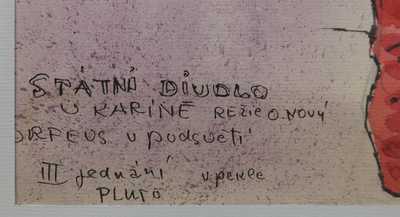 STÁTNÍ DIVDLO
U KARINĚ REŽIE O. NOVÝ
ORFEUS v podsvětí
III jednání v pekle
PLUTO